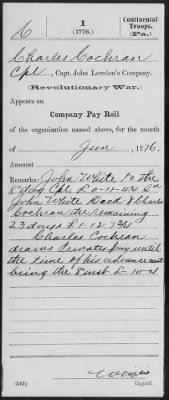 C
1
(1776.)
Continental
Troops.
(Pa.)
Charles Cochran
Cpl, Capt. John Lowdon's Company.
(Revolutionary War.)
Appears on
Company Pay Roll
of the organization named above, for the month
of Jun, 1776.
Amount
Remarks: John White to the
8" day Cpl £ 0-11-
John White Decd & Charles
Cochran the remaining
23 days £ 1-12-
Charles Cochran
draws Privates pay until
the time of his advancement
being the 8" inst £
(545)
Copyist.